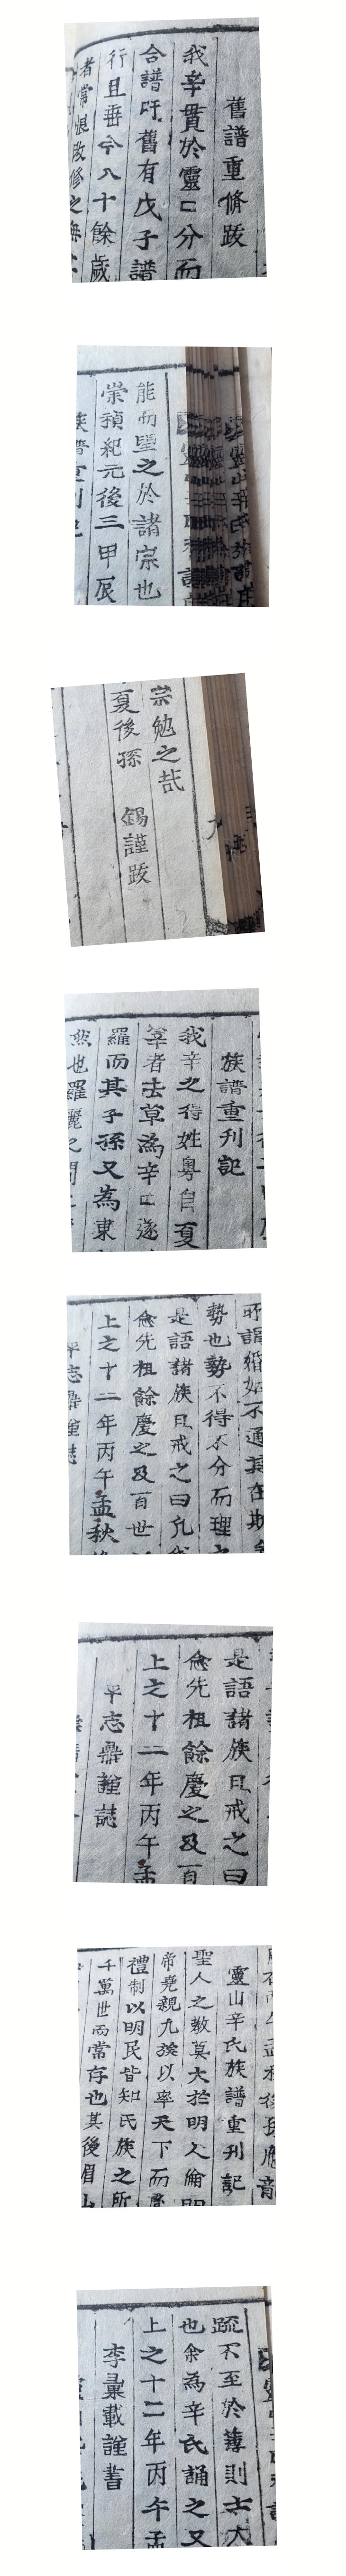 舊譜重脩跋
我辛貫於靈凵分而
合譜吁舊有戊子譜
行且垂今八十餘歲
者常恨改修之無
能而望之於諸宗也
崇禎紀元後三甲辰
族譜重刊
宗勉之哉
夏後孫 錫謹跋
族譜重刊記
我辛之得姓粤自夏
莘者去草為辛凵遂
羅而其子孫又為東
然也羅麗之間
所謂婚姻不通其在斯
勢也勢不得不分而理
是語諸族且戒之曰凡我
念先祖餘慶之及百世
上之十二年丙午孟秋
平志鼎謹誌
是語諸族且戒之曰
念先祖餘慶之及百
上之十二年丙午孟
平志鼎謹誌
靈山辛氏族譜重刊記
聖人之敎莫大於明人倫明
帝堯親九族以率天下而
禮制以明民皆知氏族之所
千萬世而常存也其後眉山
疏不至於薄則士大
也余為辛氏誦之又
上之十二年丙午孟
李彙載謹書